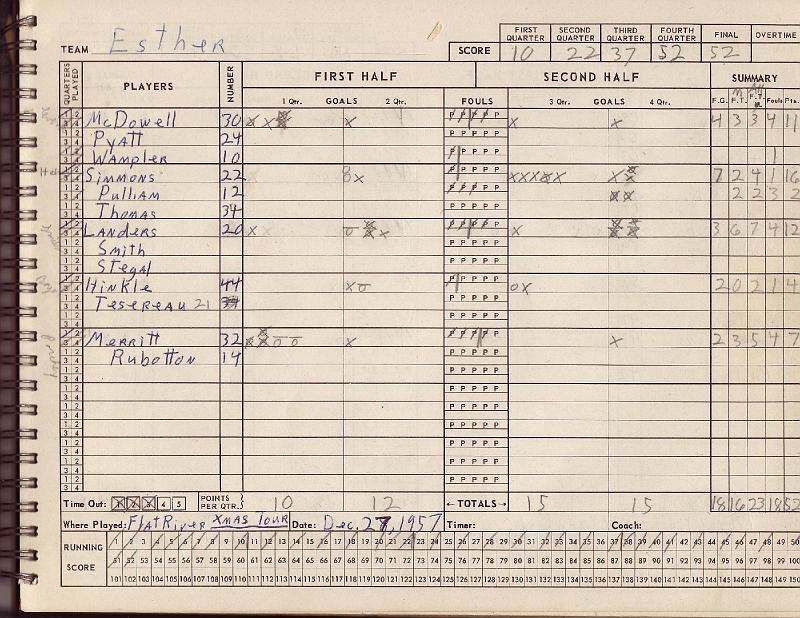 FIRST QUARTER SECOND QUARTER THIRD QUARTER FOURTH QUARTER FINAL OVERTIME
TEAM Esther SCORE 10 22 37 52 52
QUARTERS PLAYED PLAYERS NUMBER FIRST HALF SECOND HALF SUMMARY
1 Qtr. GOALS 2 Qtr. FOULS 3 Qtr. GOALS 4 Qtr. F.G. F.T. F.T. Fouls Pts.
McDowell 30 4 3 3 4 11
Pyatt 24
Wampler 10 1
Simmons 22 7 2 4 1 16
Pulliam 12 2 2 3 2
Thomas 34
Landers 20 3 6 7 4 12
Smith
Stegal
Hinkle 44 2 0 2 1 4
Tesereau 21
Merritt 32 2 3 5 4 7
Rubottom 14
Time Out: 1 2 3 4 5 POINTS PER QTR. 10 12 ←TOTALS→ 15 15 18 16 23 18 52
Where Played: Flat River Xmas Tour Date: Dec. 27, 1957 Timer: Coach:
RUNNING SCORE
1 2 3 4 5 6 7 8 9 10 11 12 13 14 15 16 17 18 19 20 21 22 23 24 25 26 27 28 29 30 31 32 33 34 35 36 37 38 39 40 41 42 43 44 45 46 47 48 49 50
51 52 53 54 55 56 57 58 59 60 61 62 63 64 65 66 67 68 69 70 71 72 73 74 75 76 77 78 79 80 81 82 83 84 85 86 87 88 89 90 91 92 93 94 95 96 97 98 99 100
101 102 103 104 105 106 107 108 109 110 111 112 113 114 115 116 117 118 119 120 121 122 123 124 125 126 127 128 129 130 131 132 133 134 135 136 137 138 139 140 141 142 143 144 145 146 147 148 149 150